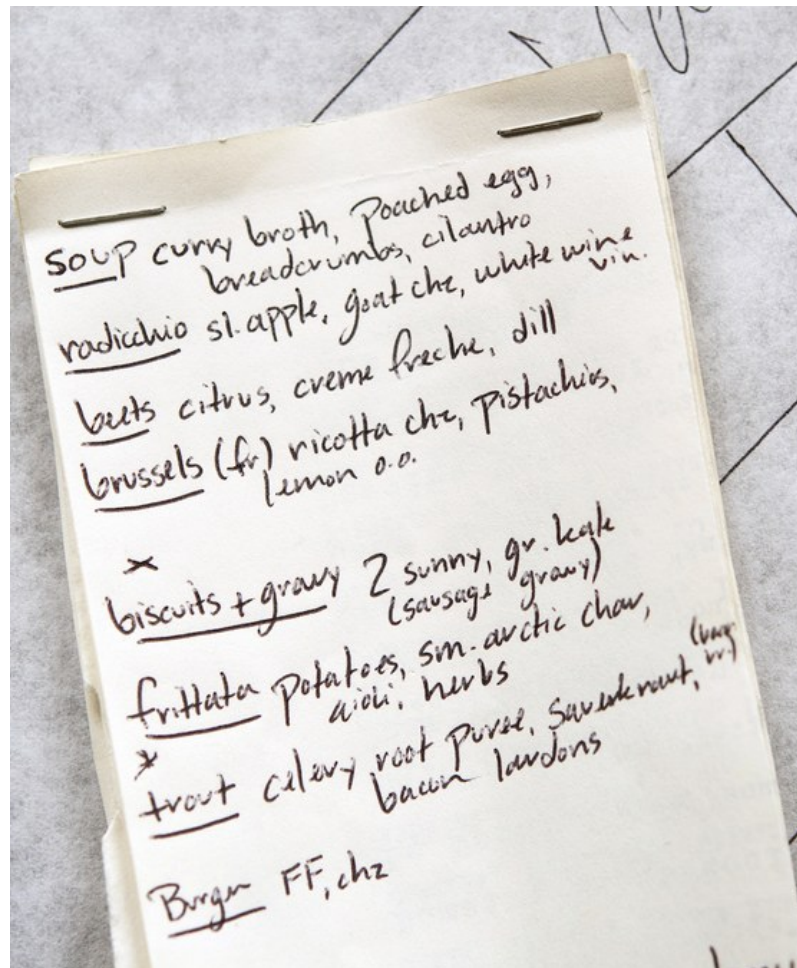 soup curry broth, Poached egg,
breadcrumbs, cilantro
radicchio sl. apple, goat chz, white wine
vin.
beets citrus, creme freche, dill
brussels (fr) ricotta chz, pistachios,
lemon o.o.
biscuits + gravy 2 sunny, gr. kale
(sausage gravy)
frittata potatoes, sm. arctic char,
aioli, herbs
trout celery root puree, sauerkraut,
bacon lardons
Burger FF, chz